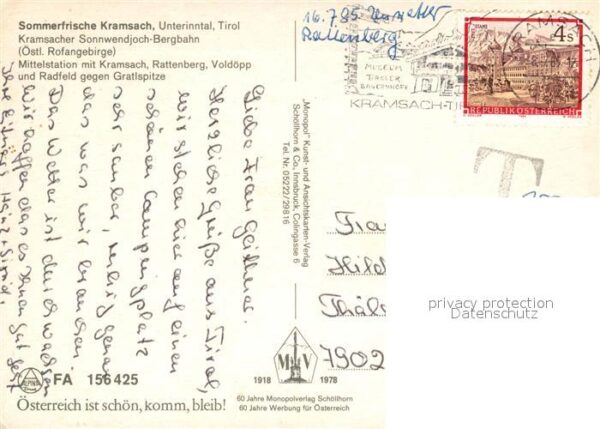 Sommerfrische Kramsach, Unterinntal, Tirol
Kramsacher Sonnwendjoch-Bergbahn
(Östl. Rofangebirge)
Mittelstation mit Kramsach, Rattenberg, Voldöpp
und Radfeld gegen Gratlspitze
16.7.85
Rattenberg
MUSEUM
TIROLER
BAUERNHÖFE
KRAMSACH-TI
KRAMSACH
4 S
STAMS
REPUBLIK ÖSTERREICH
T
Liebe Frau Geithner.
Herzliche Grüße aus Tirol,
wir stehen hier auf einen
schönen Campingplatz
sehr sauber, ruhig genau
das was wir brauchen
Das Wetter ist durchwachsen
Wir hoffen das es Ihnen gut geht
Ihre Heinz + Sigrid.
"Monopol" Kunst- und Ansichtskarten-Verlag
Schöllhorn & Co. Innsbruck, Colingasse 6
Tel. Nr. 05222/29816
Frau
Hild
Thäl
7902
privacy protection
Datenschutz
ALPINE
FA 156 425
M V
1918 1978
Österreich ist schön, komm, bleib!
60 Jahre Monopolverlag Schöllhorn
60 Jahre Werbung für Österreich